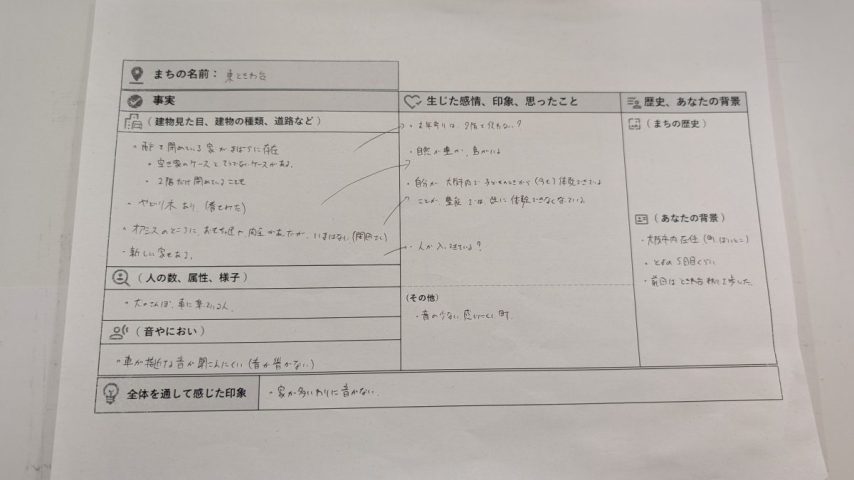 まちの名前： 東ときわ台
事実
（ 建物見た目、建物の種類、道路など ）
・雨戸を閉めている家がまばらに存在
・空き家のケースとそうでないケースがある
・2階だけ閉めていることも
・ヤドリ木あり
・オアシスのところに、おもちゃ屋や があったが、いまはない (閉店
・新しい家もある。
（ 人の数、属性、様子 ）
・犬のさんぽ、車に乗っている人
（ 音やにおい ）
・車が接近する音が聞こえにくい (音が響かない)
全体を通して感じた印象
・家が多いわりに音がない。
生じた感情、印象、思ったこと
・お年寄りは、2階を使わない？
・自然が豊か、鳥がいる
・自分が、大阪市内で子どものときから (今も) 体験できている
ことが、豊能では、既に体験できなくなっている
・人が入ってきている？
（その他）
・音の少ない 町
歴史、あなたの背景
（ まちの歴史 ）
（ あなたの背景 ）
・大阪市内在住
・とよの 5回目くらい
・前回は ときわ台 歩いた。